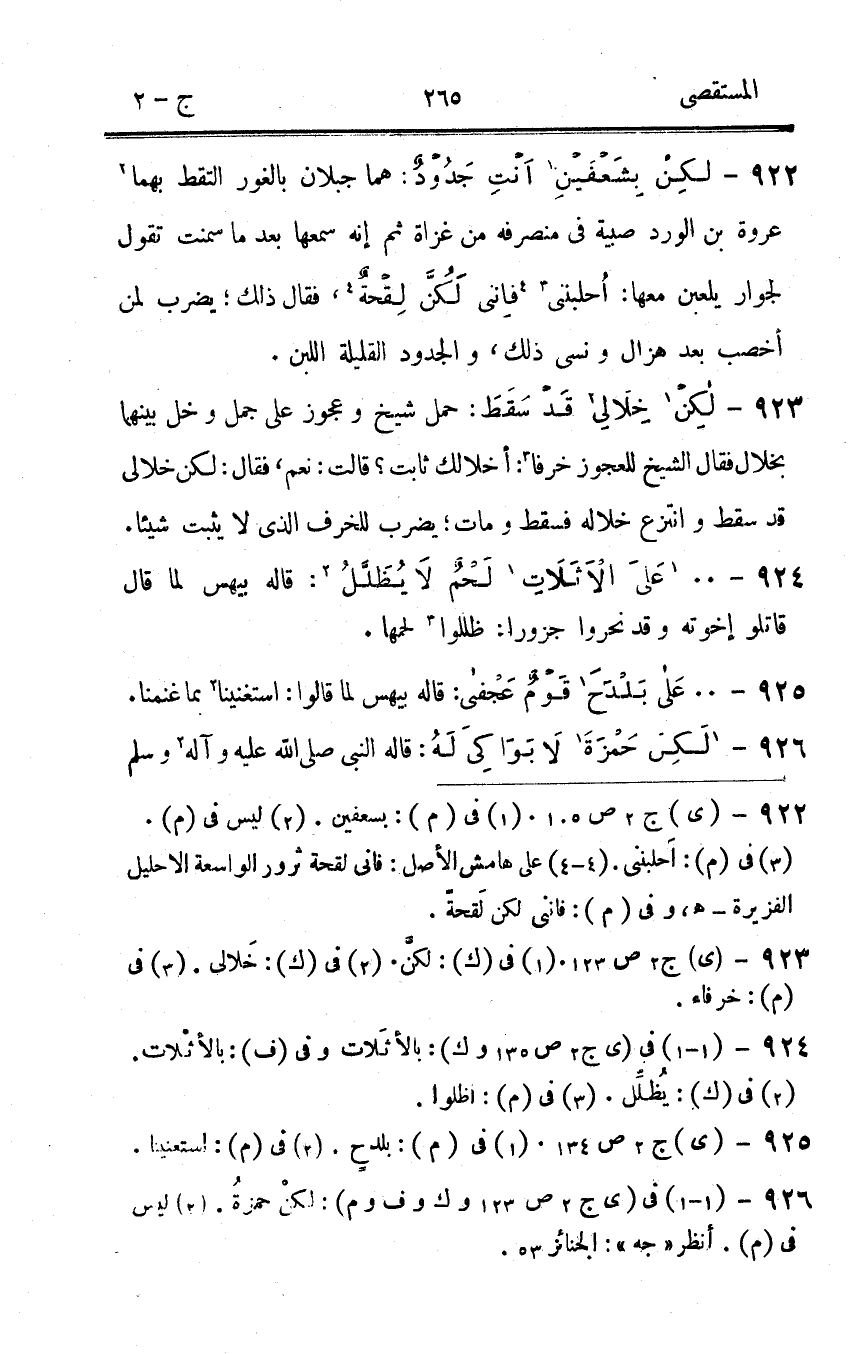 المستقصى ٢٦٥ ج – ٢
٩٢٢ – لكِنْ بِشَعْفَيْنِ¹ اَنْتِ جَدُوْدٌ: هما جبلان بالغور التقط بهما²
عروة بن الورد صبية فى منصرفه من غزاة ثم إنه سمعها بعد ما سمنت تقول
لجوار يلعبن معها: أحلبننى³ ⁴فإنى لَكُنَّ لِقْحةٌ⁴، فقال ذلك؛ يضرب لمن
أخصب بعد هزال و نسى ذلك، و الجدود القليلة اللبن .
٩٢٣ – لٰكِنْ¹ خِلَالِي² قَدْ سَقَطَ: حمل شيخ و عجوز على جمل و خل بينهما
بخلال فقال الشيخ للعجوز خرفا³: أ خلالك ثابت؟ قالت: نعم، فقال: لكن خلالى
قد سقط و انتزع خلاله فسقط و مات؛ يضرب للخرف الذى لا يثبت شيئا.
٩٢٤ – ·· ¹عَلَى الْاَثَلَاتِ¹ لَحْمٌ لَا يُظَلَّلُ²: قاله بيهس لما قال
قاتلو إخوته و قد نحروا جزورا: ظللوا³ لحمها .
٩٢٥ – ·· عَلٰى بَلْدَحَ¹ قَوْمٌ عَجْفٰى: قاله بيهس لما قالوا: استغنينا² بما غنمنا.
٩٢٦ – ¹لَكِنَ حَمْزَةَ¹ لَا بَوَاكِىَ لَهُ: قاله النبى صلى الله عليه و آله² و سلم
٩٢٢ – (ى) ج ٢ ص ١٠٥ · (١) فى (م): بسعفين . (٢) ليس فى (م) .
(٣) فى (م): اَحلبننى . (٤-٤) على هامش الأصل: فانى لقحة ثرور الواسعة الاحليل
الغزيرة – ه، و فى (م): فاننى لكن لَقحةً .
٩٢٣ – (ى) ج ٢ ص ١٢٣ · (١) فى (ك): لكنَّ · (٢) فى (ك): خَلالى . (٣) فى
(م): خرفاء .
٩٢٤ – (١-١) فى (ى ج ٢ ص ١٣٥ و ك): بالأثَلات و فى (ف): بالأثْلات.
(٢) فى (ك): يُظلَّل . (٣) فى (م): اظلوا .
٩٢٥ – (ى) ج ٢ ص ١٣٤ · (١) فى (م): بلدحٍ . (٢) فى (م): استعنينا .
٩٢٦ – (١-١) فى (ى ج ٢ ص ١٢٣ و ك و ف و م): لكنْ حمزةُ . (٢) ليس
فى (م) . أنظر « جه »: الجنائز ٥٣ .